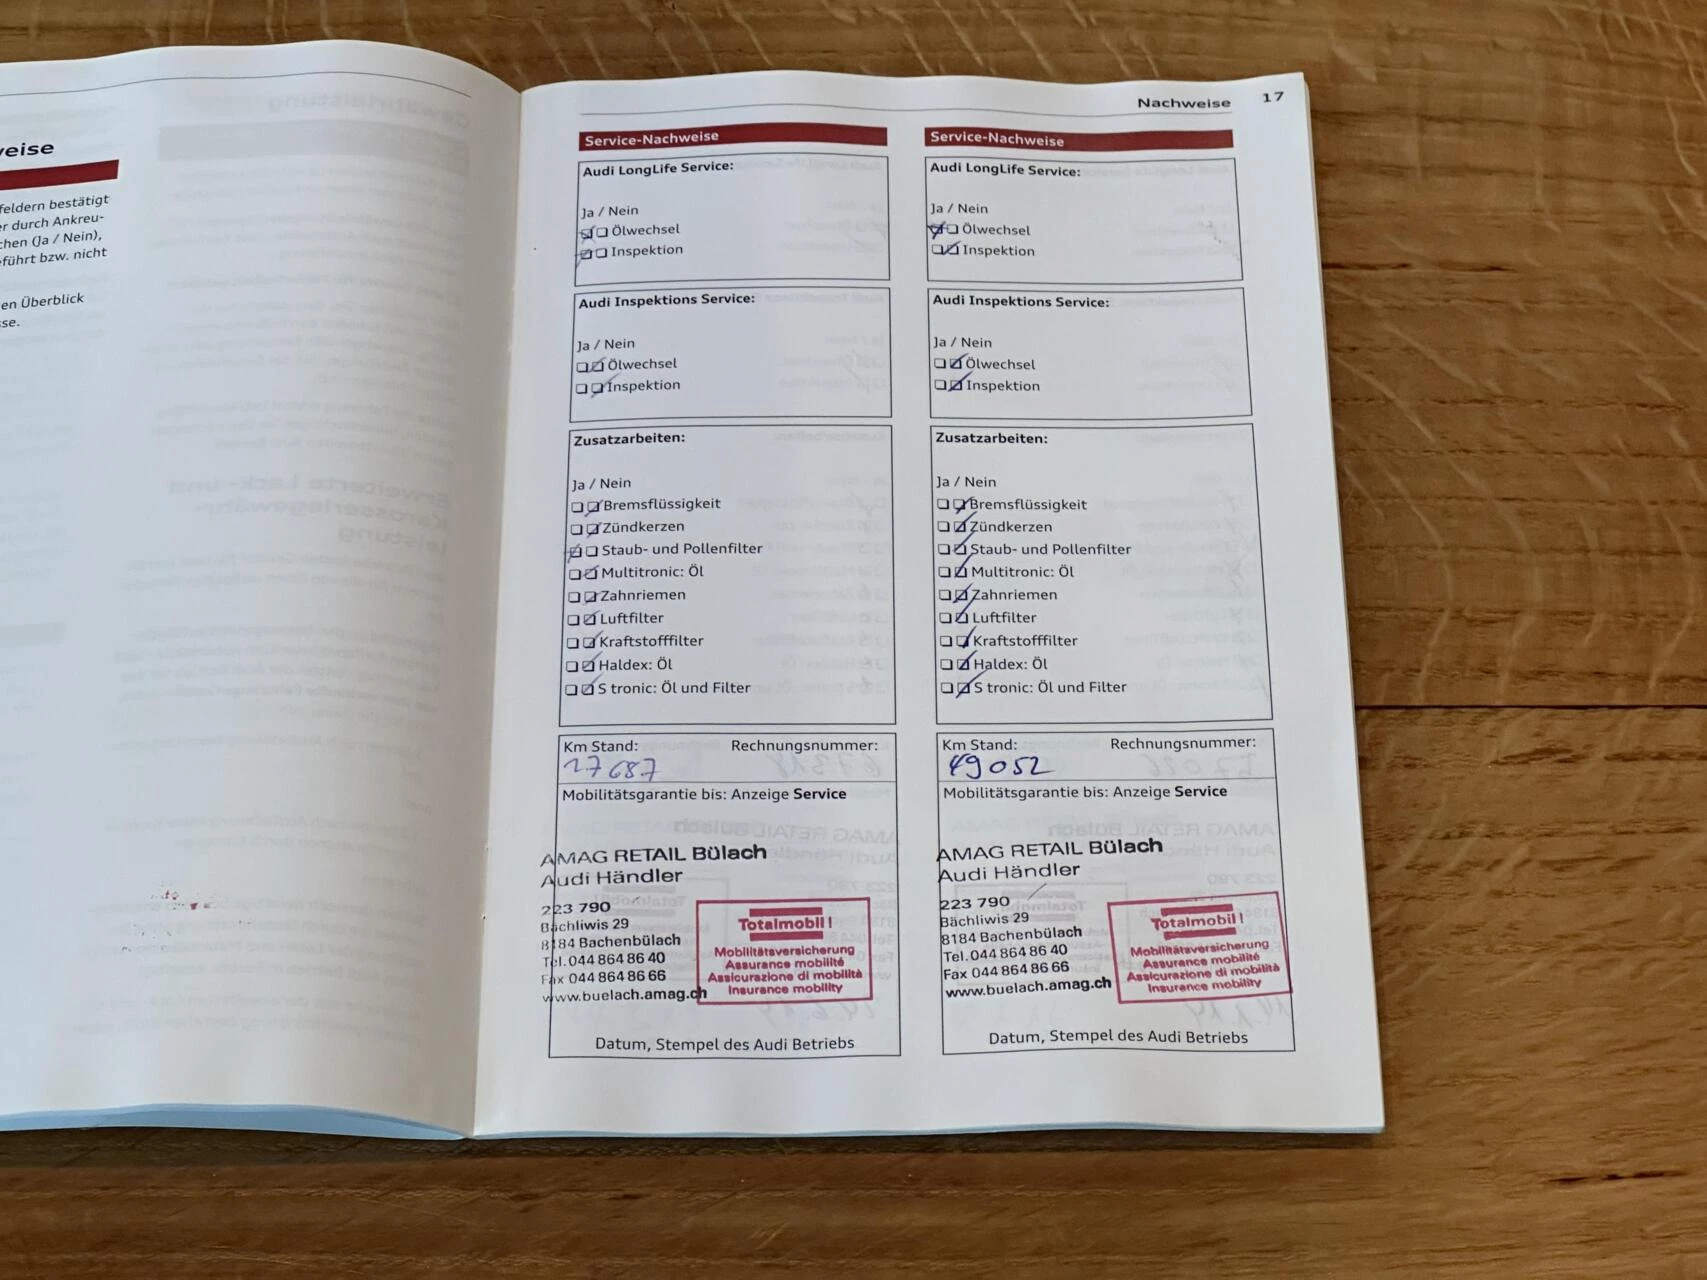 weise
feldern bestätigt
er durch Ankreu-
chen (Ja / Nein),
führt bzw. nicht
en Überblick
sse.
Nachweise 17
Service-Nachweise
Audi LongLife Service:
Ja / Nein
Ölwechsel
Inspektion
Audi Inspektions Service:
Ja / Nein
Ölwechsel
Inspektion
Zusatzarbeiten:
Ja / Nein
Bremsflüssigkeit
Zündkerzen
Staub- und Pollenfilter
Multitronic: Öl
Zahnriemen
Luftfilter
Kraftstofffilter
Haldex: Öl
S tronic: Öl und Filter
Km Stand: Rechnungsnummer:
27687
Mobilitätsgarantie bis: Anzeige Service
AMAG RETAIL Bülach
Audi Händler
223 790
Bächliwis 29
8184 Bachenbülach
Tel. 044 864 86 40
Fax 044 864 86 66
www.buelach.amag.ch
Totalmobil!
Mobilitätsversicherung
Assurance mobilité
Assicurazione di mobilità
Insurance mobility
Datum, Stempel des Audi Betriebs
Service-Nachweise
Audi LongLife Service:
Ja / Nein
Ölwechsel
Inspektion
Audi Inspektions Service:
Ja / Nein
Ölwechsel
Inspektion
Zusatzarbeiten:
Ja / Nein
Bremsflüssigkeit
Zündkerzen
Staub- und Pollenfilter
Multitronic: Öl
Zahnriemen
Luftfilter
Kraftstofffilter
Haldex: Öl
S tronic: Öl und Filter
Km Stand: Rechnungsnummer:
49052
Mobilitätsgarantie bis: Anzeige Service
AMAG RETAIL Bülach
Audi Händler
223 790
Bächliwis 29
8184 Bachenbülach
Tel. 044 864 86 40
Fax 044 864 86 66
www.buelach.amag.ch
Totalmobil!
Mobilitätsversicherung
Assurance mobilité
Assicurazione di mobilità
Insurance mobility
Datum, Stempel des Audi Betriebs